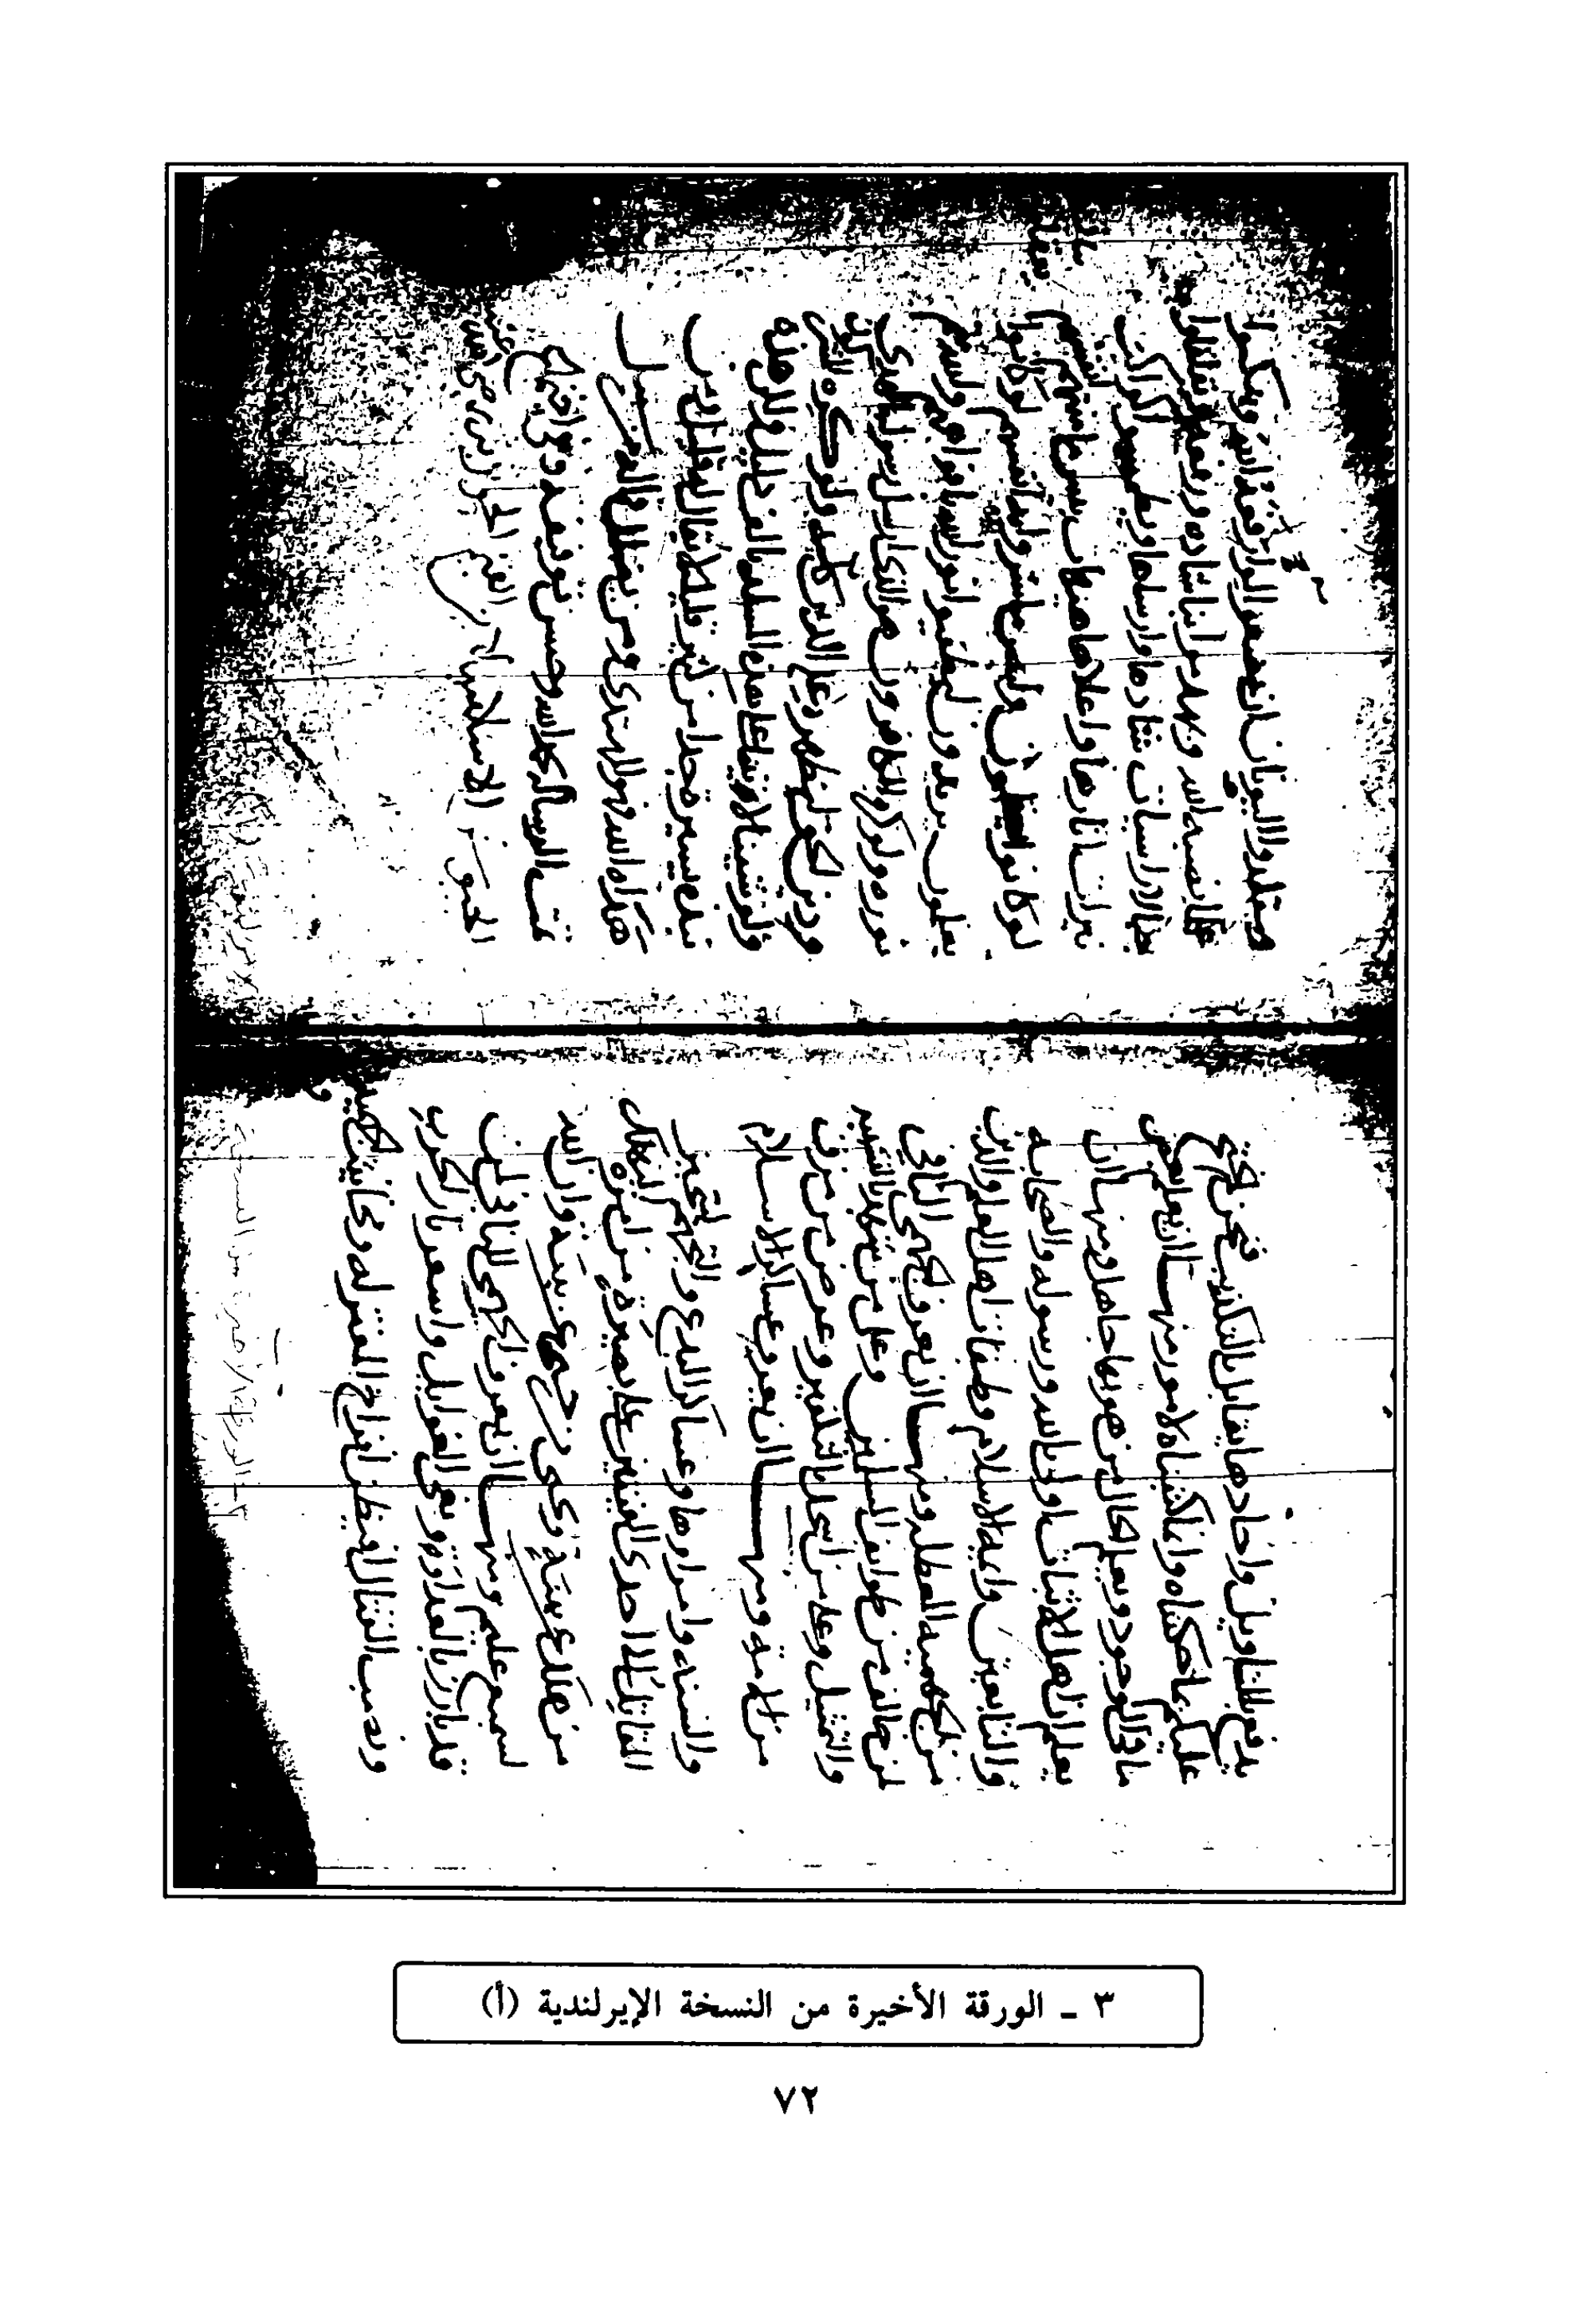 يدفع بالتأويل واحادها يقابل بالتكذيب فنحن نحتج
عليهم بما حكيناه وانما كتبناه لامور منها ان يعلم بعض
ما في الوجود ويعلم الحال من هو بها جاهل ومنها ان
يعلم ان اهل الاثبات اولى بالله ورسوله والصحابه
والتابعين وايمة الاسلام وطبقات اهل العلم والدين
من الجهمية المعطلة ومنها ان يعرف الجهمي النافي
لمن خالف من طوائف المسلمين وعلى من شهد بالتشبيه
والتمثيل وعلى من استحل بالتكفير وعرض من مزق
من ائمة ومنها ان يعرف عساكر الاسلام
والسنه وامراوها وعساكر البدع والتجهم ليتحيز
المقاتل الى احدى الفئتين على بصيرة من امره ليهلك
من هلك عن بينة ويحيى من حي عن بينة وان الله
لسميع عليم ومنها ان يعرف الجهمي النافي لمن
قد بارز بالعداوة وبغى الغوايل واسعر نار الحرب
ونصب القتال افيظن افراخ المعتزله ومخانيث الجهمية
و
ومقلدوا اليونان ان يضعوا لواء رفعه الله وينكسوا
علما نصبه الله ويهدموا بناء شاده ورفعه ويقلقلوا
جبالا راسيات شادها وارساها ويطمسوا كواكب
نيرات انارها واعلاها هيهات بئس ما منتهم انفسهم
لو كانوا يعقلون ولبئس ما شروا به انفسهم لو كانوا
يعلمون يريدون ليطفئوا نور الله بافواههم والله متم
نوره ولو كره الكافرون هو الذي ارسل رسوله بالهدى
ودين الحق ليظهره على الدين كله ولو كره المشركون
ولو شئنا لاتينا على هذه المسئلة بالف دليل ولكن هذه
نبذه يسيرة وجزء من كثير قليله لا يقال له قليل ومن
هداه الله فهو المهتدي ومن يضلل فما له من سبيل
تمت الرساله بحمد الله وحسن توفيقه وهي اجتماع
الجيوش الاسلامية
٣ ـ الورقة الأخيرة من النسخة الإيرلندية (أ)
٧٢